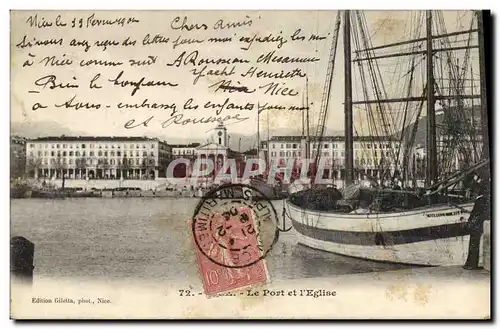 Nice le 22 Fevrier 1904 Chers Amis
Si vous avez reçu des lettres pour moi expediez les moi
à Nice comme suit A Rousseau Mecanicien
Yacht Henriette
Bien le bonjour Nice
à tous embrassez les enfants pour moi
et Rousseau
72. - NICE. - Le Port et l'Eglise
Edition Giletta, phot., Nice.